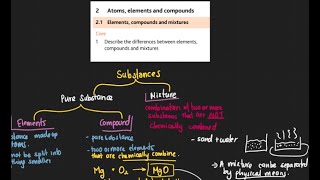 2 Atoms, elements and compounds
2.1 Elements, compounds and mixtures
Core
1 Describe the differences between elements, compounds and mixtures
Substances
Pure Substance
Mixture
combination of two or more
substances that are NOT
chemically combined
Elements
Compound
made up
- pure substance
- two or more elements
that are chemically combine.
not be split into
- sand + water
Mg + O₂ → MgO
→ A mixture can be separated
by physical means.